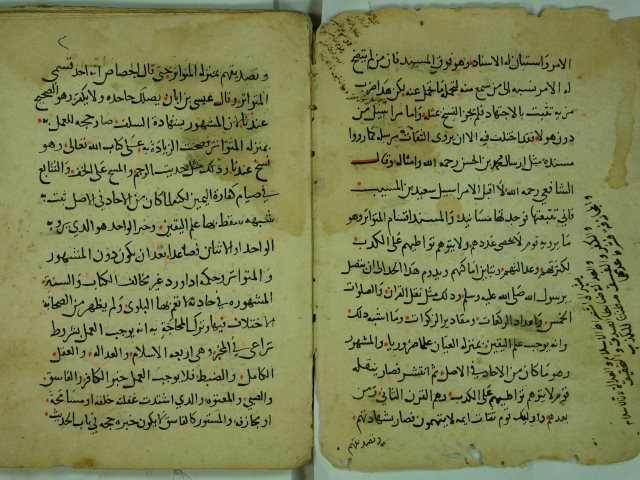 الامر واستبان له الاسناد وهو فوق المسند فان من لم يتضح
له الامر نسبه الى من سمع منه لتحمله ما تحمل عنه لكن هذا ضرب
مزية تثبت بالاجتهاد فلم يجز النسخ بمثله واما مراسيل من
دون هولاء فقد اختلف فيه الا ان يروى الثقات مرسله كما رووا
مسنده مثل ارسال محمد بن الحسن رحمه الله وامثاله وقال
الشافعي رحمه الله لا اقبل المراسيل سعيد بن المسيب
فاني تتبعتها فوجدتها مسانيد والمسند اقسام المتواتر وهو
ما يرويه قوم لا يحصى عددهم ولا يتوهم تواطيهم على الكذب
لكثرتهم وعدالتهم وتباين اماكنهم ويدوم هذا الحد الى ان يتصل
برسول الله صلى الله عليه وسلم وذلك مثل نقل القران والصلوات
الخمس واعداد الركعات ومقادير الزكوات وما اشبه ذلك
وانه يوجب علم اليقين بمنزلة العيان علما ضروريا والمشهور
وهو ما كان من الاحاد في الاصل ثم انتشر فصار ينقله
قوم لا يتوهم تواطيهم على الكذب وهم القرن الثاني ومن
بعدهم واوليك قوم ثقات ايمة لا يتهمون فصار بشهادتهم
وتصديقهم
وتصديقهم بمنزلة المتواتر حتى قال الجصاص انه احد قسمي
المتواتر وقال عيسى بن ابان يضلل جاحده ولا يكفر وهو الصحيح
عندنا لان المشهور بشهادة السلف صار حجة للعمل به
بمنزلة المتواتر فصحت الزيادة به على كتاب الله تعالى وهو
نسخ عندنا وذلك مثل حديث الرجم والمسح على الخف والتتابع
في صيام كفارة اليمين لكنه لما كان من الاحاد في الاصل ثبت به
شبهه سقط بها علم اليقين وخبر الواحد وهو الذي يرويه
الواحد او الاثنان فصاعدا بعد ان يكون دون المشهور
والمتواتر وحكمه اذا ورد غير مخالف للكتاب والسنة
المشهوره في حادثة لا تعم بها البلوى ولم يظهر من الصحابة
الاختلاف فيها وترك المحاجة به انه يوجب العمل بشروط
تراعى في المخبر وهي اربعة الاسلام والعدالة والعقل
الكامل والضبط فلا يوجب العمل خبر الكافر والفاسق
والصبي والمعتوه والذي اشتدت غفلته خلقة او مسامحة
او مجازفة والمستور كالفاسق لا يكون خبره حجة في باب الحديث